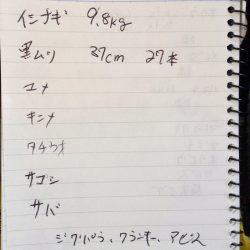 イシナギ 9.8kg
黒ムツ 37cm 27本
ユメ
キンメ
タチウオ
サゴシ
サバ
ジグパラ、クランキー、アビス